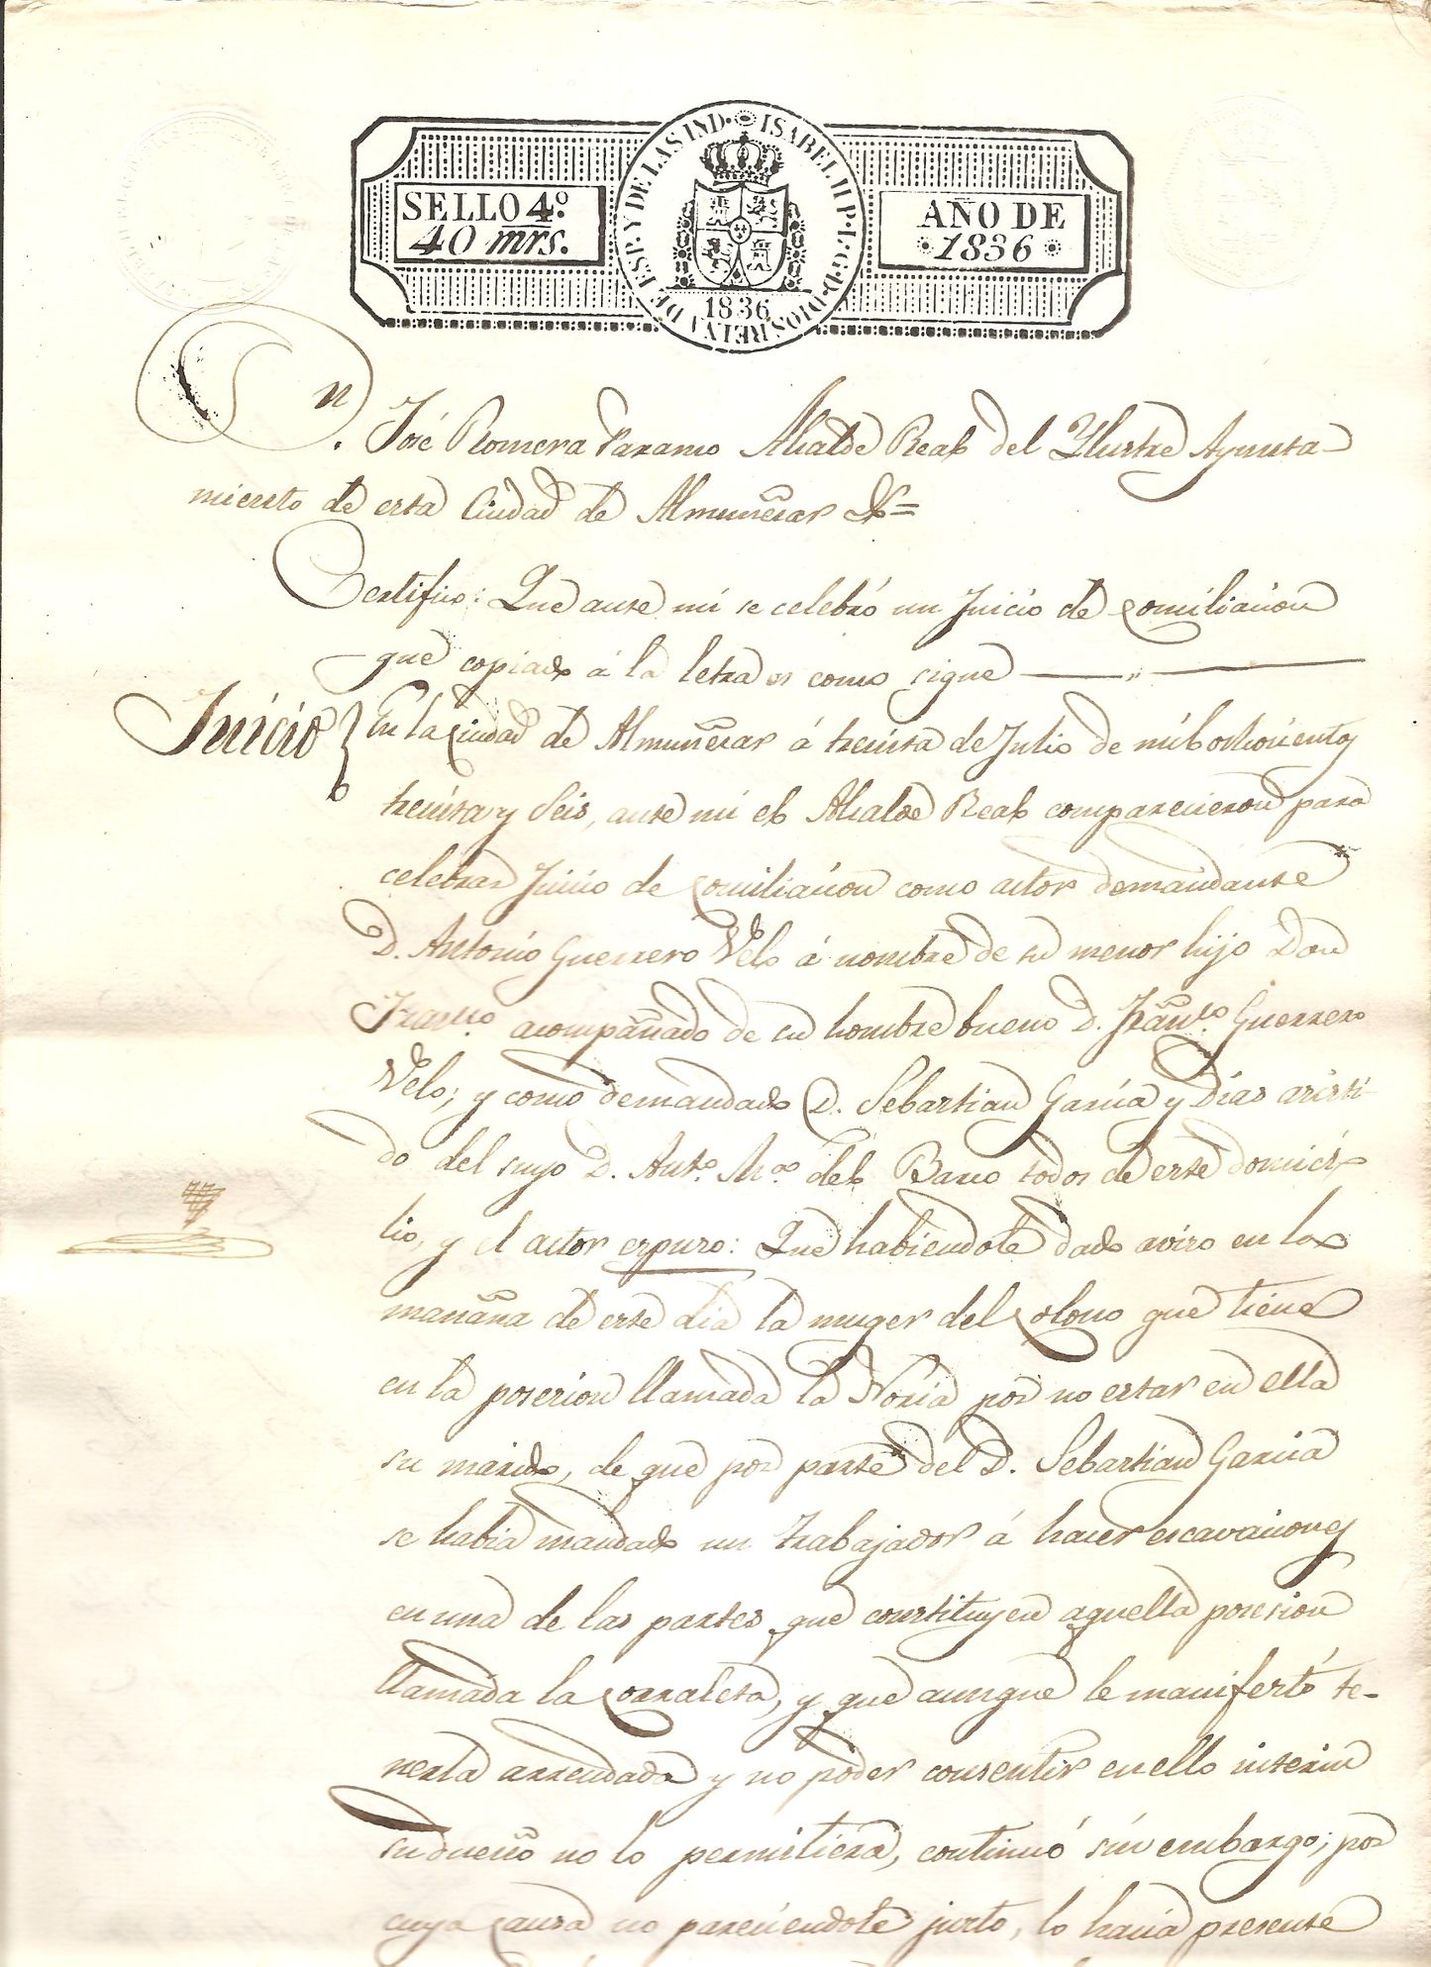 SELLO 4º.
40 mrs.
ISABEL II P. L. G. D. DIOS REINA DE ESP. Y DE LAS IND.
1836
AÑO DE
1836
Dn. José Romera Paramo Alcalde Real del Ylustre Ayunta-
miento de esta Ciudad de Almuñecar &=
Certifico: Que ante mi se celebró un Juicio de conciliacion
que copiado á la letra es como sigue
Juicio
En la ciudad de Almuñecar á treinta de Julio de mil ochocientos
treinta y Seis, ante mi el Alcalde Real comparecieron para
celebrar Juicio de conciliacion como actor demandante
D. Antonio Guerrero Velo á nombre de su menor hijo Don
Franco. acompañado de su hombre bueno D. Franco. Guerrero
Velo; y como demandado D. Sebastian Garcia y Dias asisti-
do del suyo D. Anto. Ma. del Barco todos de este domici-
lio, y el actor espuso: Que habiendole dado aviso en la
mañana de este dia la muger del colono que tiene
en la posesion llamada la Noria por no estar en ella
su marido, de que por parte del D. Sebastian Garcia
se habia mandado un trabajador á hacer escavaciones
en una de las partes que constituyen aquella posesion
llamada la corraleta, y que aunque le manifestó te-
nerla arrendada y no poder consentir en ello interin
su dueño no lo permitiera, continuó sin embargo; por
cuya causa no pareciendole justo, lo hacia presente